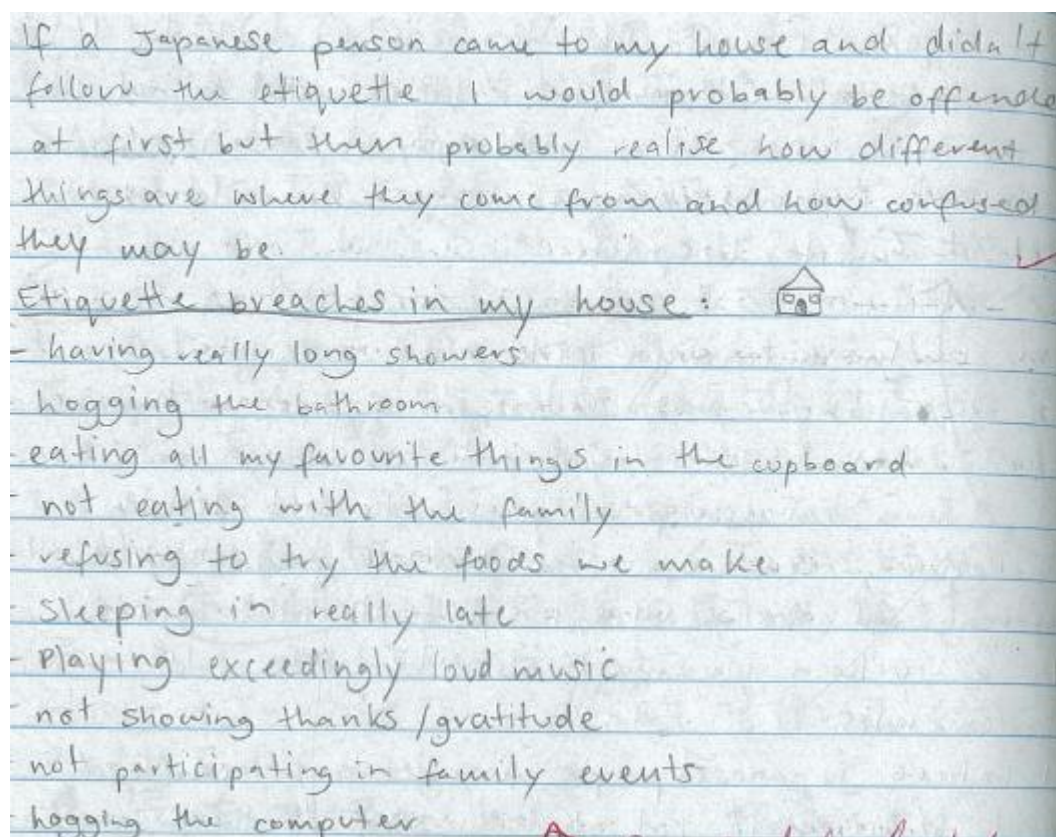 If a Japanese person came to my house and didn't
follow the etiquette I would probably be offende
at first but then probably realise how different
things are where they come from and how confused
they may be.
Etiquette breaches in my house:
- having really long showers
- hogging the bathroom
- eating all my favourite things in the cupboard
- not eating with the family
- refusing to try the foods we make
- sleeping in really late
- Playing exceedingly loud music
- not showing thanks / gratitude
- not participating in family events
- hogging the computer